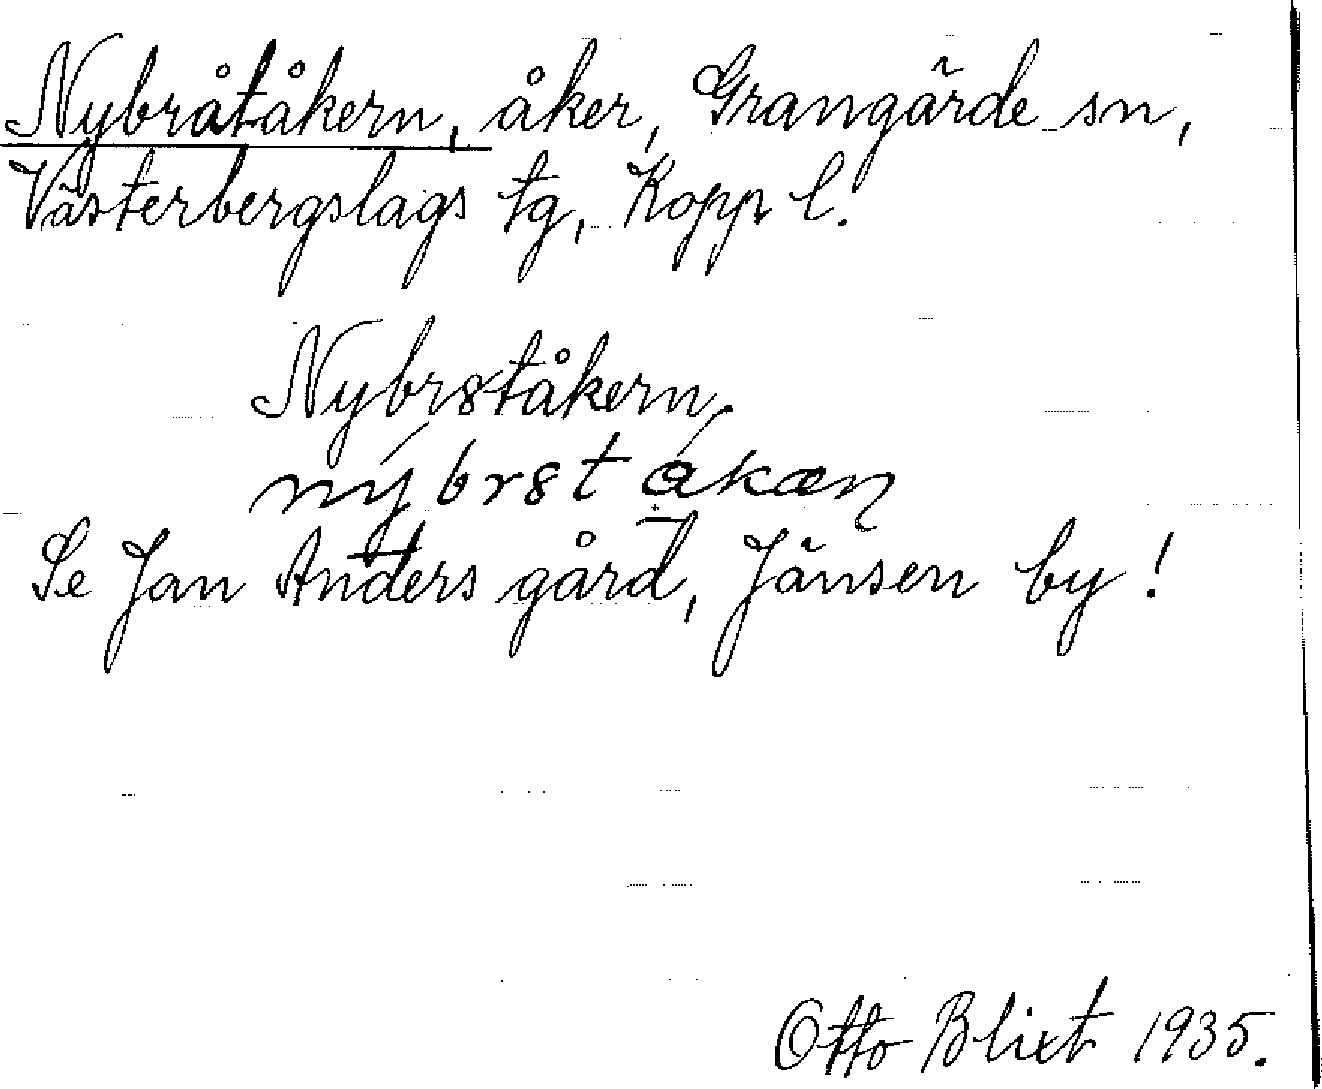 Nybråtåkern, åker, Grangärde sn,
Västerbergslags tg, Kopp l.
Nybrståkern,
Se Jan Anders gård, Jänsen by!
Otto Blixt 1935.